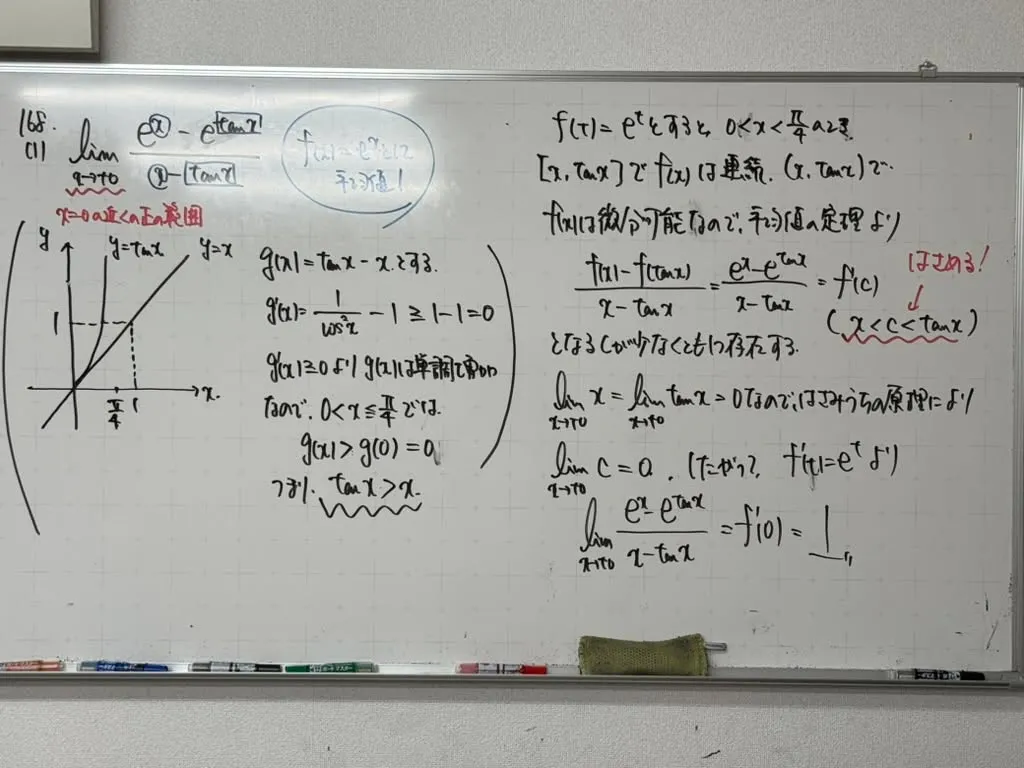 168.
(1) lim_{x→+0} (e^x - e^{tan x}) / (x - tan x)
f(x)=e^xとして
平均値!
x=0の近くの正の範囲
y y=tanx y=x
1
π/4 1 x.
g(x)=tanx-xとする.
g'(x)=1/cos²x - 1 ≧ 1-1=0
g'(x)≧0よりg(x)は単調で増加
なので、0<x≦π/4では
g(x)>g(0)=0
つまり、tanx>x.
f(t)=e^tとすると、0<x<π/4のとき
[x, tanx]でf(x)は連続、(x, tanx)で
f(x)は微分可能なので、平均値の定理より
(f(x)-f(tanx))/(x-tanx) = (e^x-e^{tanx})/(x-tanx) = f'(c)
はさめる!
(x<c<tanx)
となるcが少なくとも1つ存在する.
lim_{x→+0} x = lim_{x→+0} tanx = 0なので、はさみうちの原理により
lim_{x→+0} c = 0. したがって, f'(t)=e^tより
lim_{x→+0} (e^x-e^{tanx})/(x-tanx) = f'(0) = 1